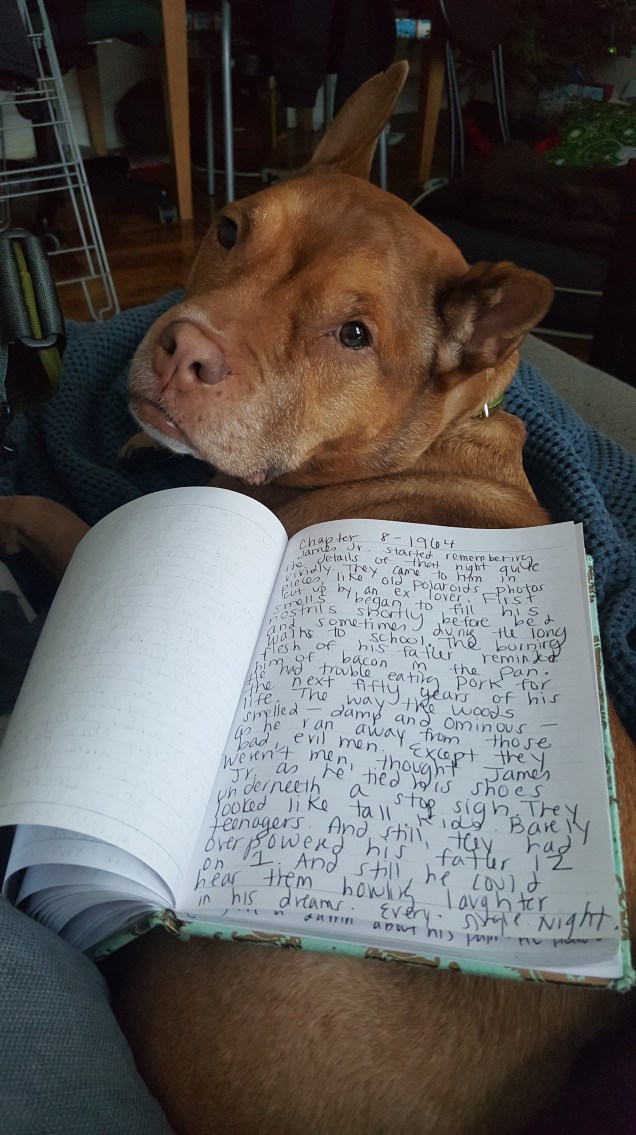 Chapter 8-1964
James Jr. started remembering
the details of that night quite
vividly. They came to him in
pieces, like old Polaroids photos
cut up by an ex lover. First
smells began to fill his
nostrils shortly before bed
and sometimes during the long
walks to school. The burning
flesh of his father reminded
him of bacon in the pan.
He had trouble eating pork for
the next fifty years of his
life. The way the woods
smelled - damp and ominous -
as he ran away from those
bad, evil men. Except they
weren't men, thought James
Jr. as he tied his shoes
underneeth a stop sign. They
looked like tall kids. Barely
teenagers. And still, they had
overpowered his father 12
on 1. And still, he could
hear them howling laughter
in his dreams. Every. Single. Night.
a damn about his